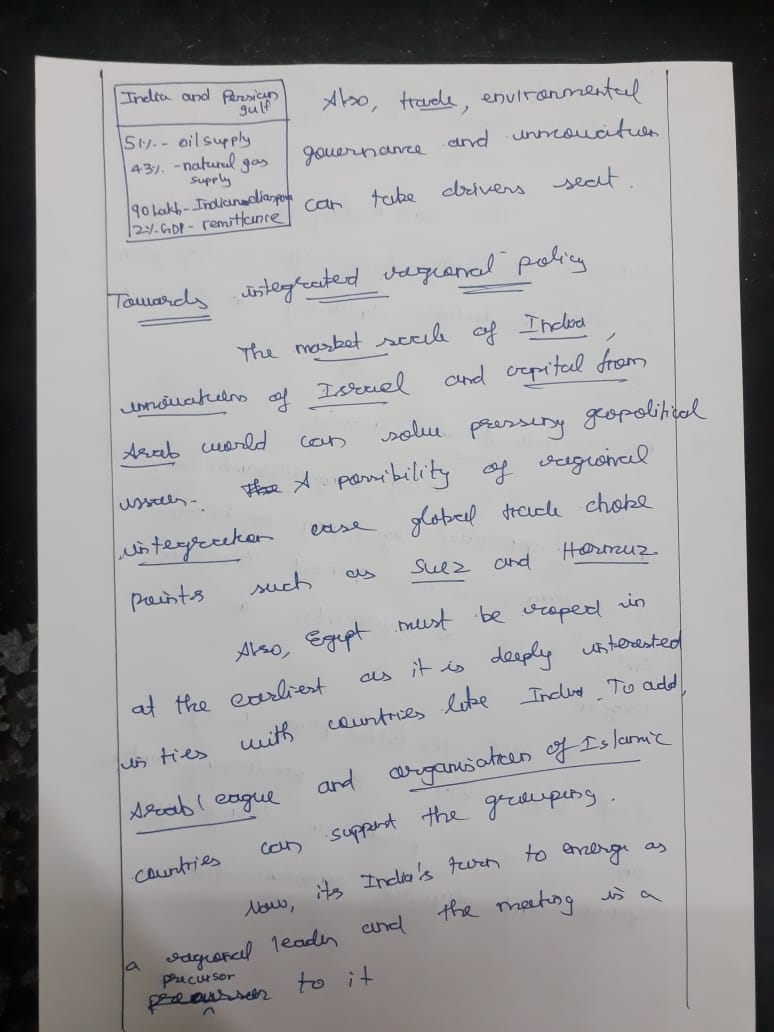 India and Persian
gulf
51%. - oil supply
43%. - natural gas
supply
90 Lakh - Indian diaspora
2%. GDP - remittance
Also, trade, environmental
governance and innovation
can take drivers seat.
Towards integrated regional policy
The market scale of India,
innovation of Israel and capital from
Arab world can solve pressing geopolitical
issues. A possibility of regional
integration ease global trade choke
points such as Suez and Hormuz.
Also, Egypt must be roped in
at the earliest as it is deeply interested
in ties with countries like India. To add,
Arab league and organisation of Islamic
countries can support the grouping.
Now, its India's turn to emerge as
a regional leader and the meeting is a
precursor to it